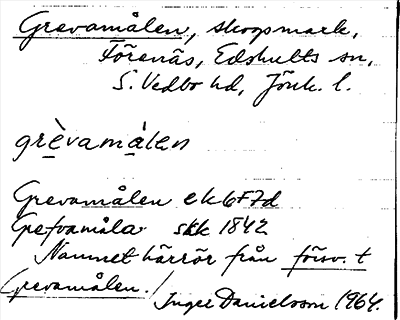 Grevamålen, skogsmark,
Förenäs, Edshults sn,
S. Vedbo hd, Jönk. l.
grèvamálen
Grevamålen ek 6F7d
Grefvamåla skk 1842
Namnet härrör från försv. t
Grevamålen. /
Inger Danielsson 1964.